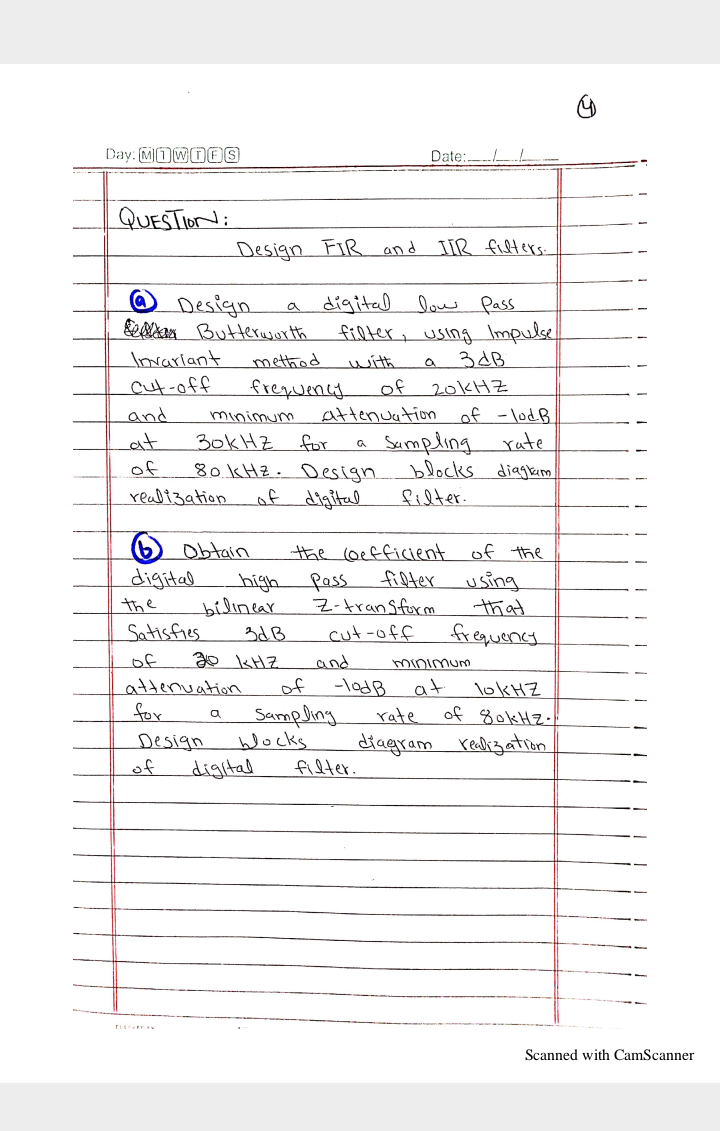 4
Day: M T W T F S Date: __/__/__
QUESTION:
Design FIR and IIR filters.
a Design a digital low pass
Butterworth filter, using Impulse
Invariant method with a 3dB
cut-off frequency of 20kHZ
and minimum attenuation of -10dB
at 30kHZ for a sampling rate
of 80kHZ. Design blocks diagram
realization of digital filter.
b Obtain the coefficient of the
digital high pass filter using
the bilinear Z-transform that
Satisfies 3dB cut-off frequency
of kHZ and minimum
attenuation of -10dB at 10kHZ
for a sampling rate of 80kHZ.
Design blocks diagram realization
of digital filter.
Scanned with CamScanner